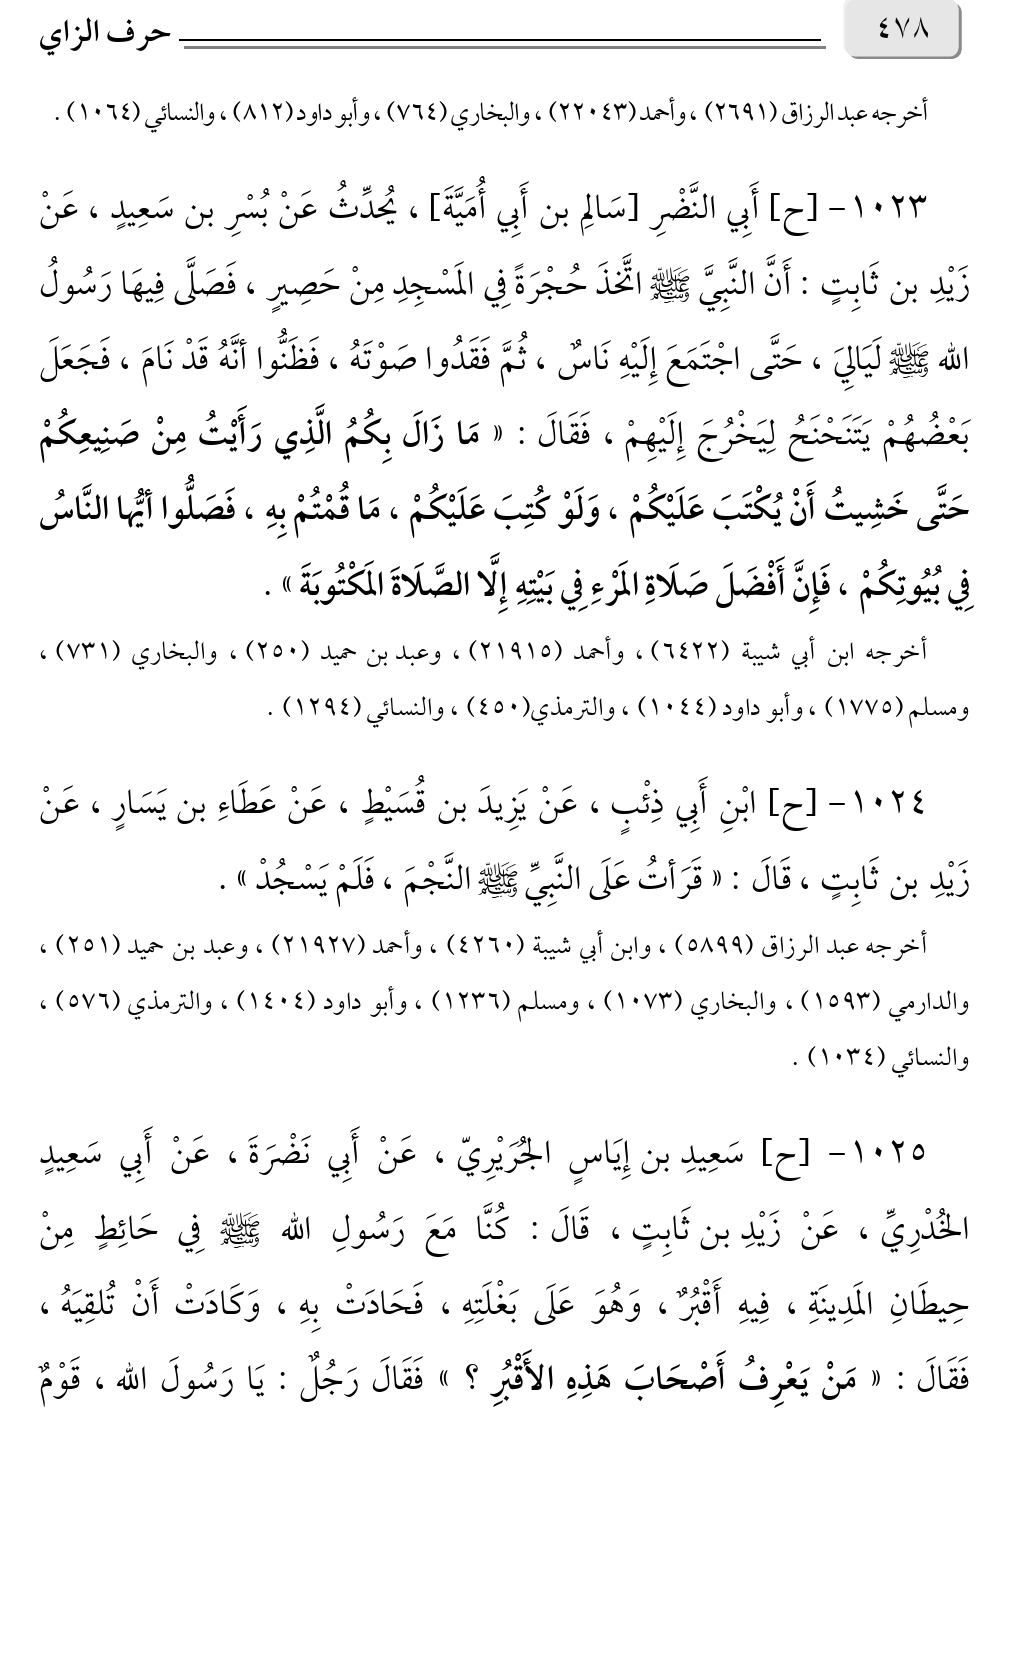 ٤٧٨ حرف الزاي
أخرجه عبد الرزاق (٢٦٩١) ، وأحمد (٢٢٠٤٣) ، والبخاري (٧٦٤) ، وأبو داود (٨١٢) ، والنسائي (١٠٦٤) .
١٠٢٣- [ح] أَبِي النَّضْرِ [سَالِمِ بن أَبِي أُمَيَّةَ] ، يُحدِّثُ عَنْ بُسْرِ بن سَعِيدٍ ، عَنْ
زَيْدِ بن ثَابِتٍ : أَنَّ النَّبِيَّ ﷺ اتَّخذَ حُجْرَةً فِي المَسْجِدِ مِنْ حَصِيرٍ ، فَصَلَّى فِيهَا رَسُولُ
الله ﷺ لَيَالِيَ ، حَتَّى اجْتَمَعَ إِلَيْهِ نَاسٌ ، ثُمَّ فَقَدُوا صَوْتَهُ ، فَظَنُّوا أنَّهُ قَدْ نَامَ ، فَجَعَلَ
بَعْضُهُمْ يَتَنَحْنَحُ لِيَخْرُجَ إِلَيْهِمْ ، فَقَالَ : « مَا زَالَ بِكُمُ الَّذِي رَأَيْتُ مِنْ صَنِيعِكُمْ
حَتَّى خَشِيتُ أَنْ يُكْتَبَ عَلَيْكُمْ ، وَلَوْ كُتِبَ عَلَيْكُمْ ، مَا قُمْتُمْ بِهِ ، فَصَلُّوا أيُّها النَّاسُ
فِي بُيُوتِكُمْ ، فَإِنَّ أَفْضَلَ صَلَاةِ المَرْءِ فِي بَيْتِهِ إِلَّا الصَّلَاةَ المَكْتُوبَةَ » .
أخرجه ابن أبي شيبة (٦٤٢٢) ، وأحمد (٢١٩١٥) ، وعبد بن حميد (٢٥٠) ، والبخاري (٧٣١) ،
ومسلم (١٧٧٥) ، وأبو داود (١٠٤٤) ، والترمذي(٤٥٠) ، والنسائي (١٢٩٤) .
١٠٢٤- [ح] ابْنِ أَبِي ذِئْبٍ ، عَنْ يَزِيدَ بن قُسَيْطٍ ، عَنْ عَطَاءِ بن يَسَارٍ ، عَنْ
زَيْدِ بن ثَابِتٍ ، قَالَ : « قَرَأتُ عَلَى النَّبِيِّ ﷺ النَّجْمَ ، فَلَمْ يَسْجُدْ » .
أخرجه عبد الرزاق (٥٨٩٩) ، وابن أبي شيبة (٤٢٦٠) ، وأحمد (٢١٩٢٧) ، وعبد بن حميد (٢٥١) ،
والدارمي (١٥٩٣) ، والبخاري (١٠٧٣) ، ومسلم (١٢٣٦) ، وأبو داود (١٤٠٤) ، والترمذي (٥٧٦) ،
والنسائي (١٠٣٤) .
١٠٢٥- [ح] سَعِيدِ بن إِيَاسٍ الجُرَيْرِيّ ، عَنْ أَبِي نَضْرَةَ ، عَنْ أَبِي سَعِيدٍ
الخُدْرِيِّ ، عَنْ زَيْدِ بن ثَابِتٍ ، قَالَ : كُنَّا مَعَ رَسُولِ الله ﷺ فِي حَائِطٍ مِنْ
حِيطَانِ المَدِينَةِ ، فِيهِ أَقْبُرٌ ، وَهُوَ عَلَى بَغْلَتِهِ ، فَحَادَتْ بِهِ ، وَكَادَتْ أَنْ تُلقِيَهُ ،
فَقَالَ : « مَنْ يَعْرِفُ أَصْحَابَ هَذِهِ الأَقْبُرِ ؟ » فَقَالَ رَجُلٌ : يَا رَسُولَ الله ، قَوْمٌ